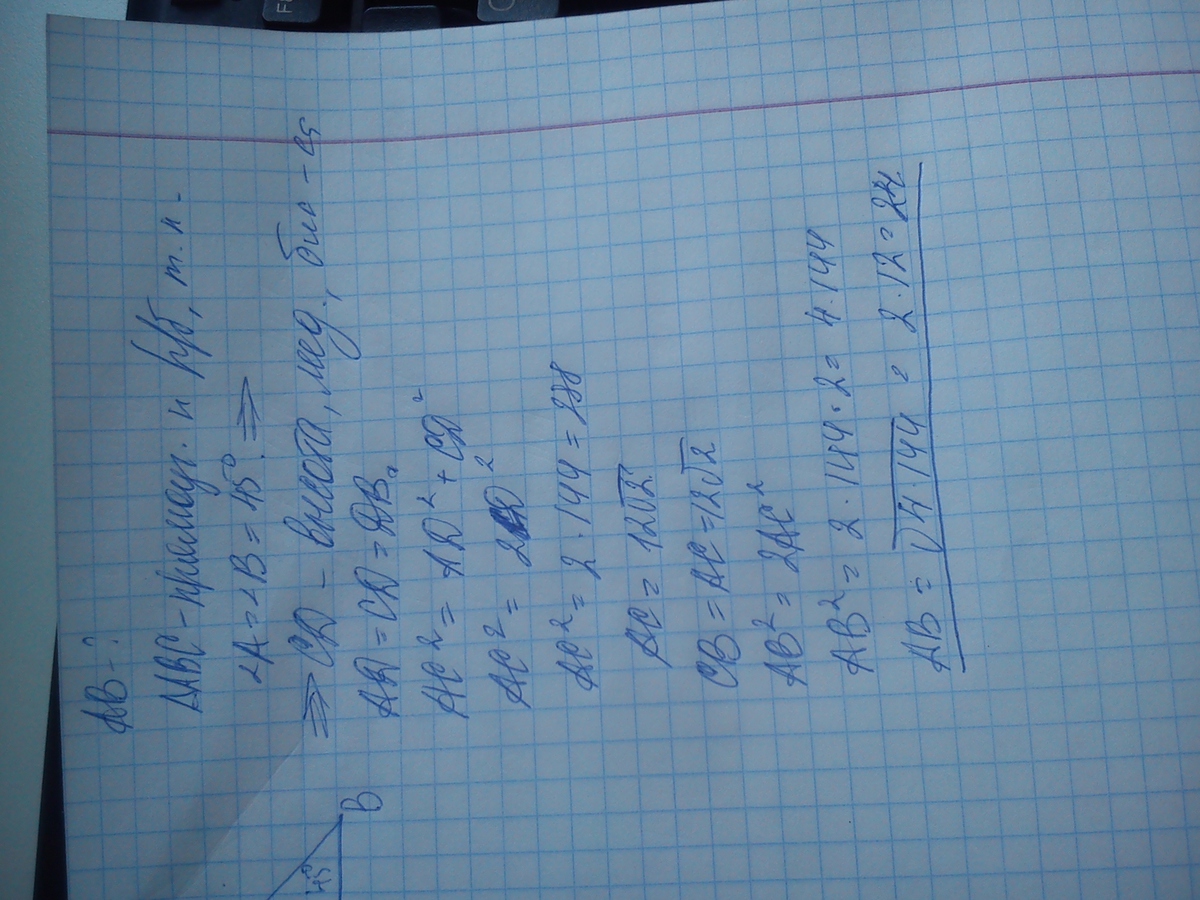 AB - ?
ΔABC - прямоуг. и р/б, т.к.
∠A = ∠B = 45° ⇒
⇒ CD - высота, мед., бис-са
AD = CD = DB.
AC² = AD² + CD²
AC² = 2CD²
AC² = 2 · 144 = 288
AC = 12√2
CB = AC = 12√2
AB² = 2AC²
AB² = 2 · 144 · 2 = 4 · 144
AB = √4 · 144 = 2 · 12 = 24
45°
B